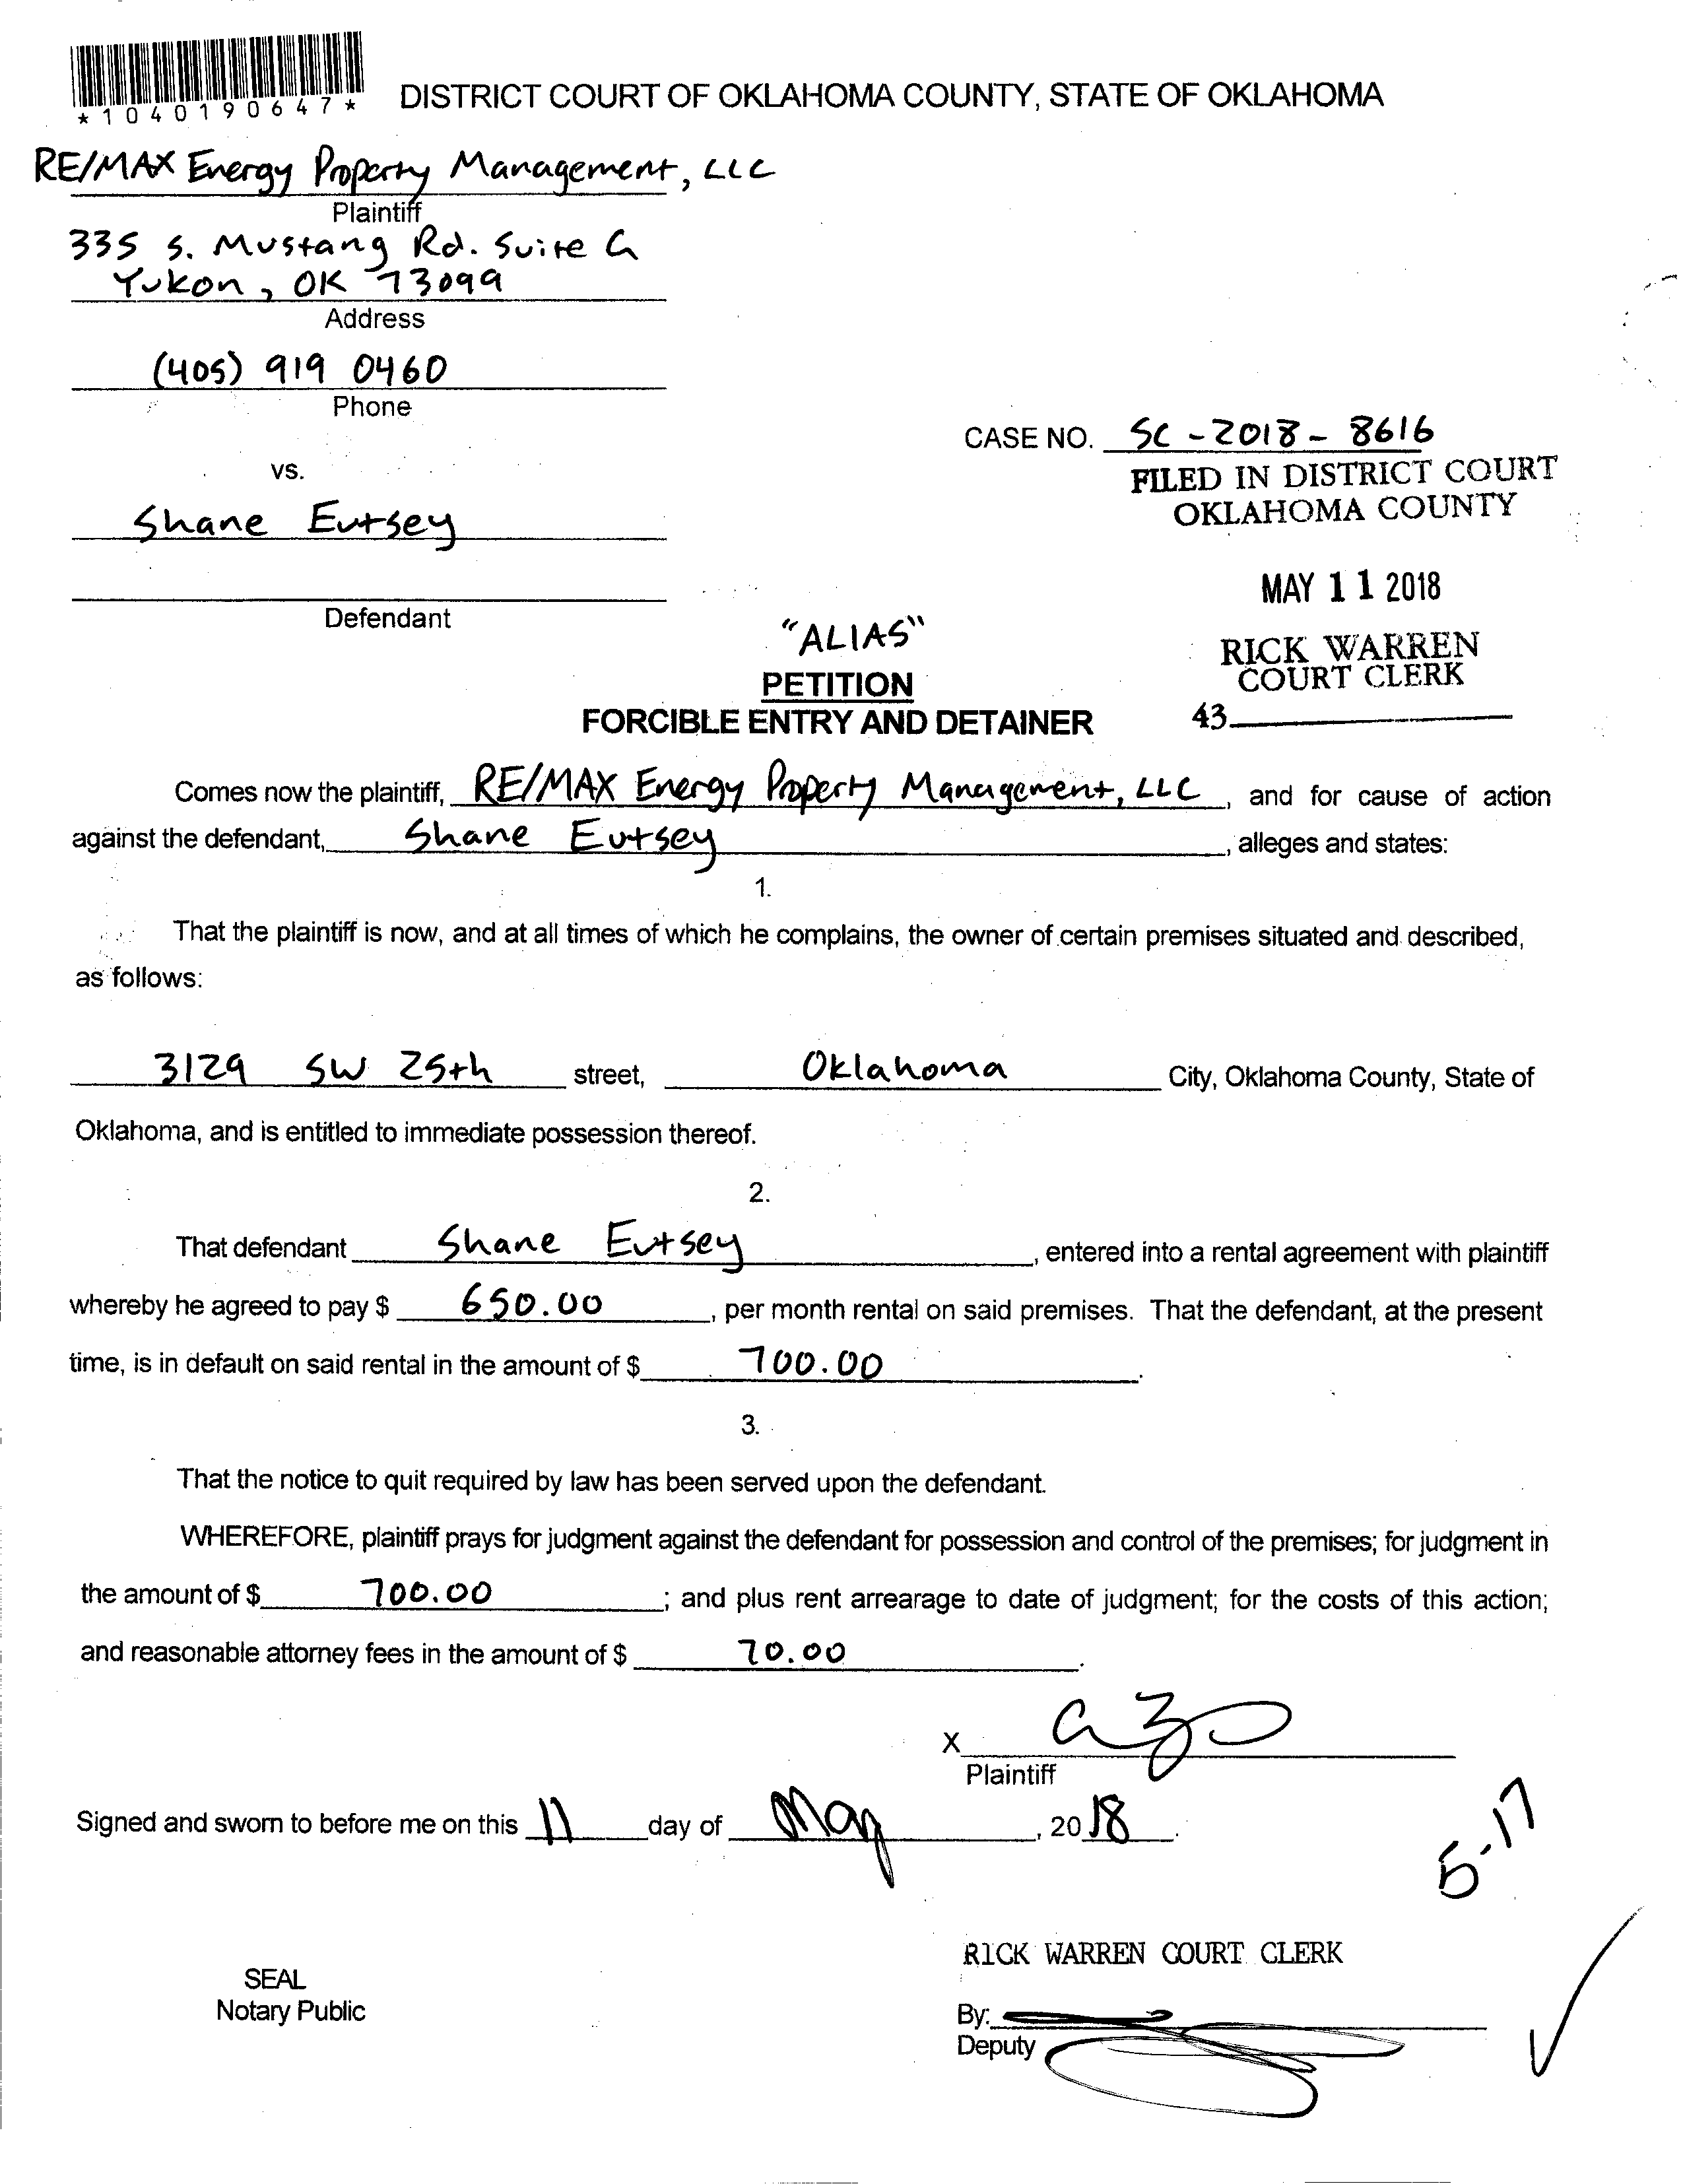 *1040190647*
DISTRICT COURT OF OKLAHOMA COUNTY, STATE OF OKLAHOMA
RE/MAX Energy Property Management, LLC
Plaintiff
335 S. Mustang Rd. Suite G
Yukon, OK 73099
Address
(405) 919 0460
Phone
CASE NO. SC-2018-8616
vs.
FILED IN DISTRICT COURT
OKLAHOMA COUNTY
Shane Eutsey
MAY 11 2018
Defendant
"ALIAS"
RICK WARREN
COURT CLERK
PETITION
FORCIBLE ENTRY AND DETAINER
43
Comes now the plaintiff, RE/MAX Energy Property Management, LLC, and for cause of action
against the defendant, Shane Eutsey, alleges and states:
1.
That the plaintiff is now, and at all times of which he complains, the owner of certain premises situated and described,
as follows:
3129 SW 25th street, Oklahoma City, Oklahoma County, State of
Oklahoma, and is entitled to immediate possession thereof.
2.
That defendant Shane Eutsey, entered into a rental agreement with plaintiff
whereby he agreed to pay $ 650.00, per month rental on said premises. That the defendant, at the present
time, is in default on said rental in the amount of $ 700.00.
3.
That the notice to quit required by law has been served upon the defendant.
WHEREFORE, plaintiff prays for judgment against the defendant for possession and control of the premises; for judgment in
the amount of $ 700.00; and plus rent arrearage to date of judgment; for the costs of this action;
and reasonable attorney fees in the amount of $ 70.00.
X
Plaintiff
Signed and sworn to before me on this 11 day of May, 2018.
5-17
RICK WARREN COURT CLERK
SEAL
Notary Public
By:
Deputy